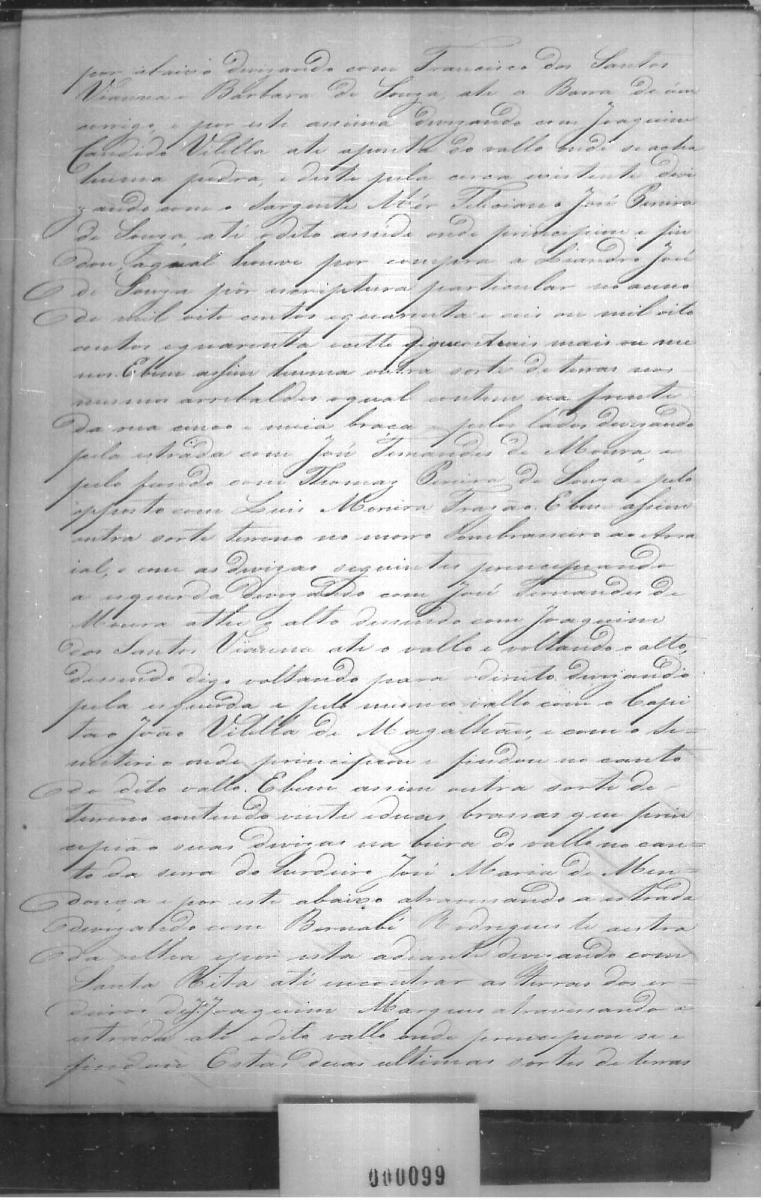 por abaixo divizando com Francisco dos Santos
Vianna e Barbara de Souza, ate a Barra de um
corrigo, e por este assima divizando com Joaquim
Candido Vilella ate aponta do vallo onde se acha
huma pedra, e deste pela cerca existente devi
zando com o Sargento Mór Feliciano José Pereira
de Souza, ate o dito onde principiou e fin
dou, a qual houve por compra a Leandro José
de Souza por escriptura particular no anno
de mil oito centos equarenta e seis ou mil oito
centos equarenta esette mais ou me
nos. Ebem assim huma outra sorte de terras nos
mesmos arribaldes oqual contem na frente
da rua cinco e meia braça e pelos lados divizando
pela estrada com José Fernandes de Moura, e
pelo fundo com Thomaz Pereira de Souza e pelo
opposto com Luis Moreira Ebem assim
outra sorte terreno no morro ao Arra
ial, e com as divizas seguintes principiando
a esquerda divizando com José Fernandes de
Moura athe o alto desendo com Joaquim
dos Santos Vianna ate o vallo e voltando o alto,
desendo digo voltando para o direito divizando
pela esquerda e pelo mesmo vallo com o Capi
tão João Vilella de Magalhães, e com o Se=
meterio onde principiou e findou no canto
do dito vallo. Ebem assim outra sorte de
Terreno contendo vinte eduas brassas que prin
cipião suas divizas na beira do vallo no can=
to da serra do herdeiro José Maria de Men=
donça e por este abaixo atravessando a estrada
divizando com Bernabé Rodrigues te aestra
da velha epor esta adiante divizando com
Santa Rita até encontrar as terras dos er=
deiros de Joaquim Marques atravessando a
estrada até odito vallo onde principiou se e
findou Estas duas ultimas sortes de terras
000099